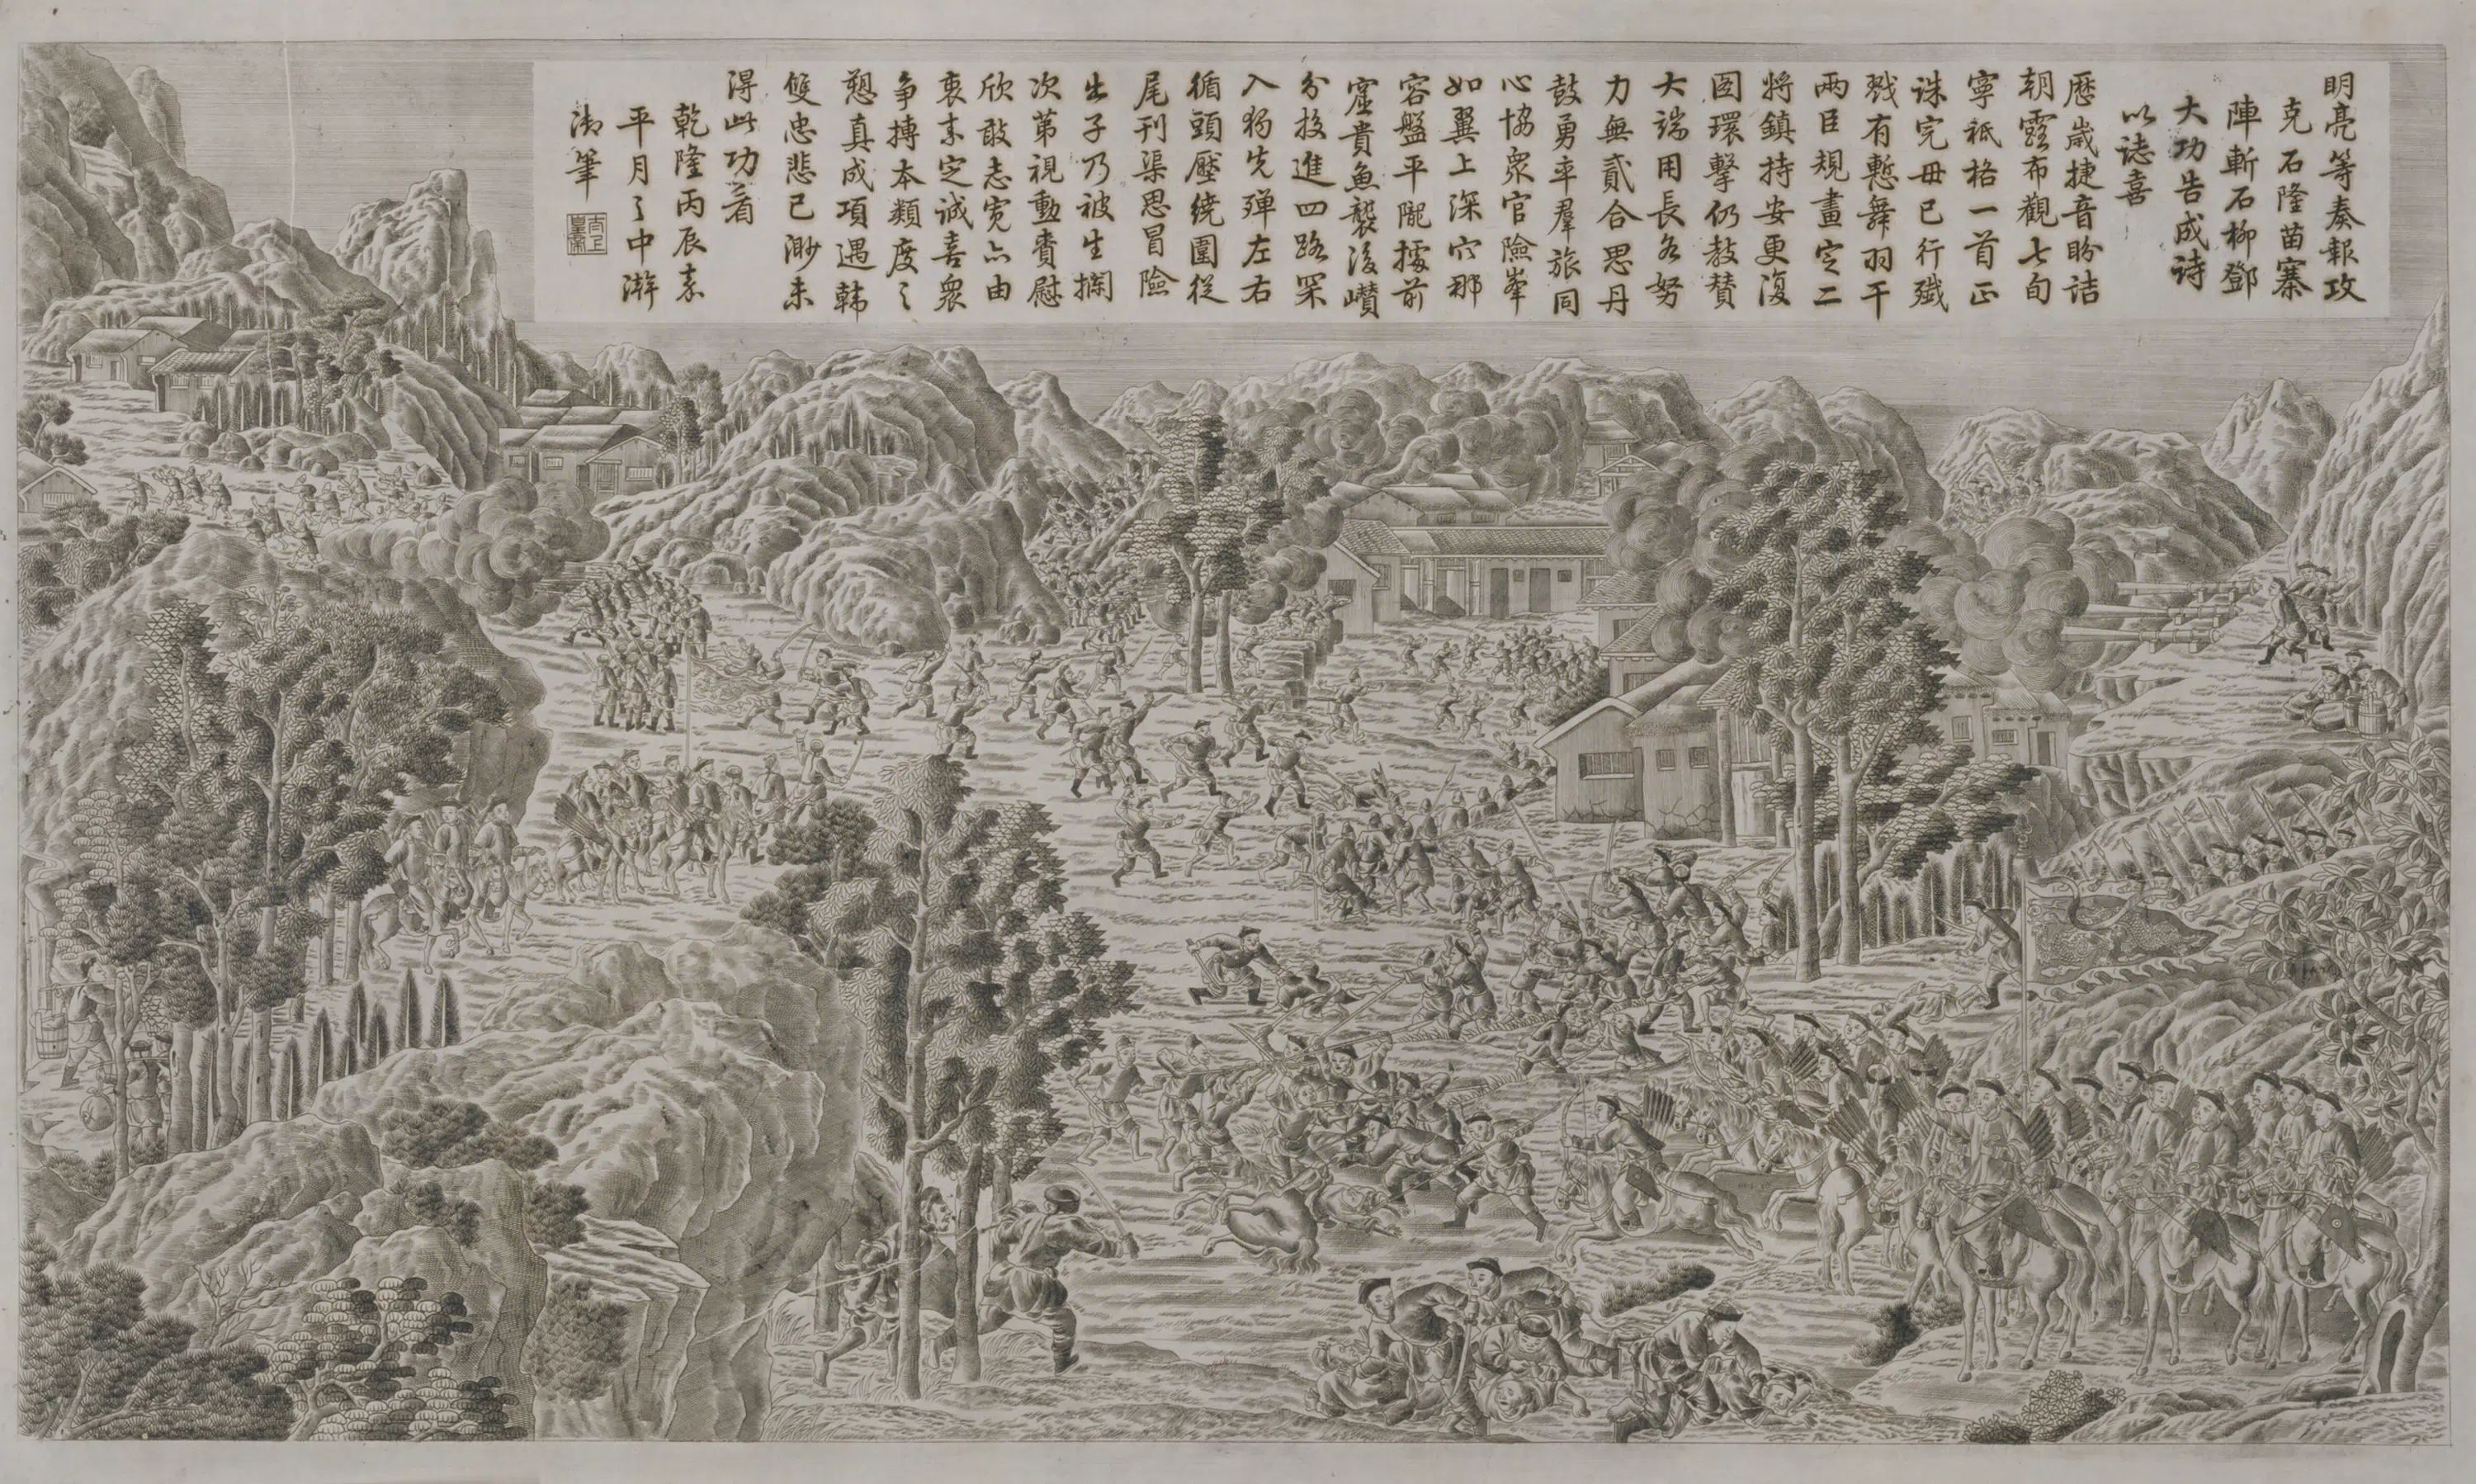 明亮等奏報攻
克石隆苗寨
陣斬石柳鄧
大功告成詩
以誌喜
歷歲捷音盼詰
朝露布觀七旬
寧祗格一首正
誅完毋已行殲
戮有慙舞羽干
兩臣規畫定二
將鎮持安更復
圖環擊仍教贊
大端用長各努
力無貳合思丹
鼓勇率羣旅同
心協眾官險峯
如翼上深穴那
容盤平隴擄前
窟貴魚襲後巑
分投進四路罙
入獨先殫左右
循頭壓繞圍從
尾刊渠思冒險
出子乃被生擱
次第視勳賚慰
欣敢志寬亦由
衷素定誠喜眾
争搏本類度之
憩真成項遇韓
雙忠悲已渺未
得此功着
乾隆丙辰嘉
平月之中澣
御筆